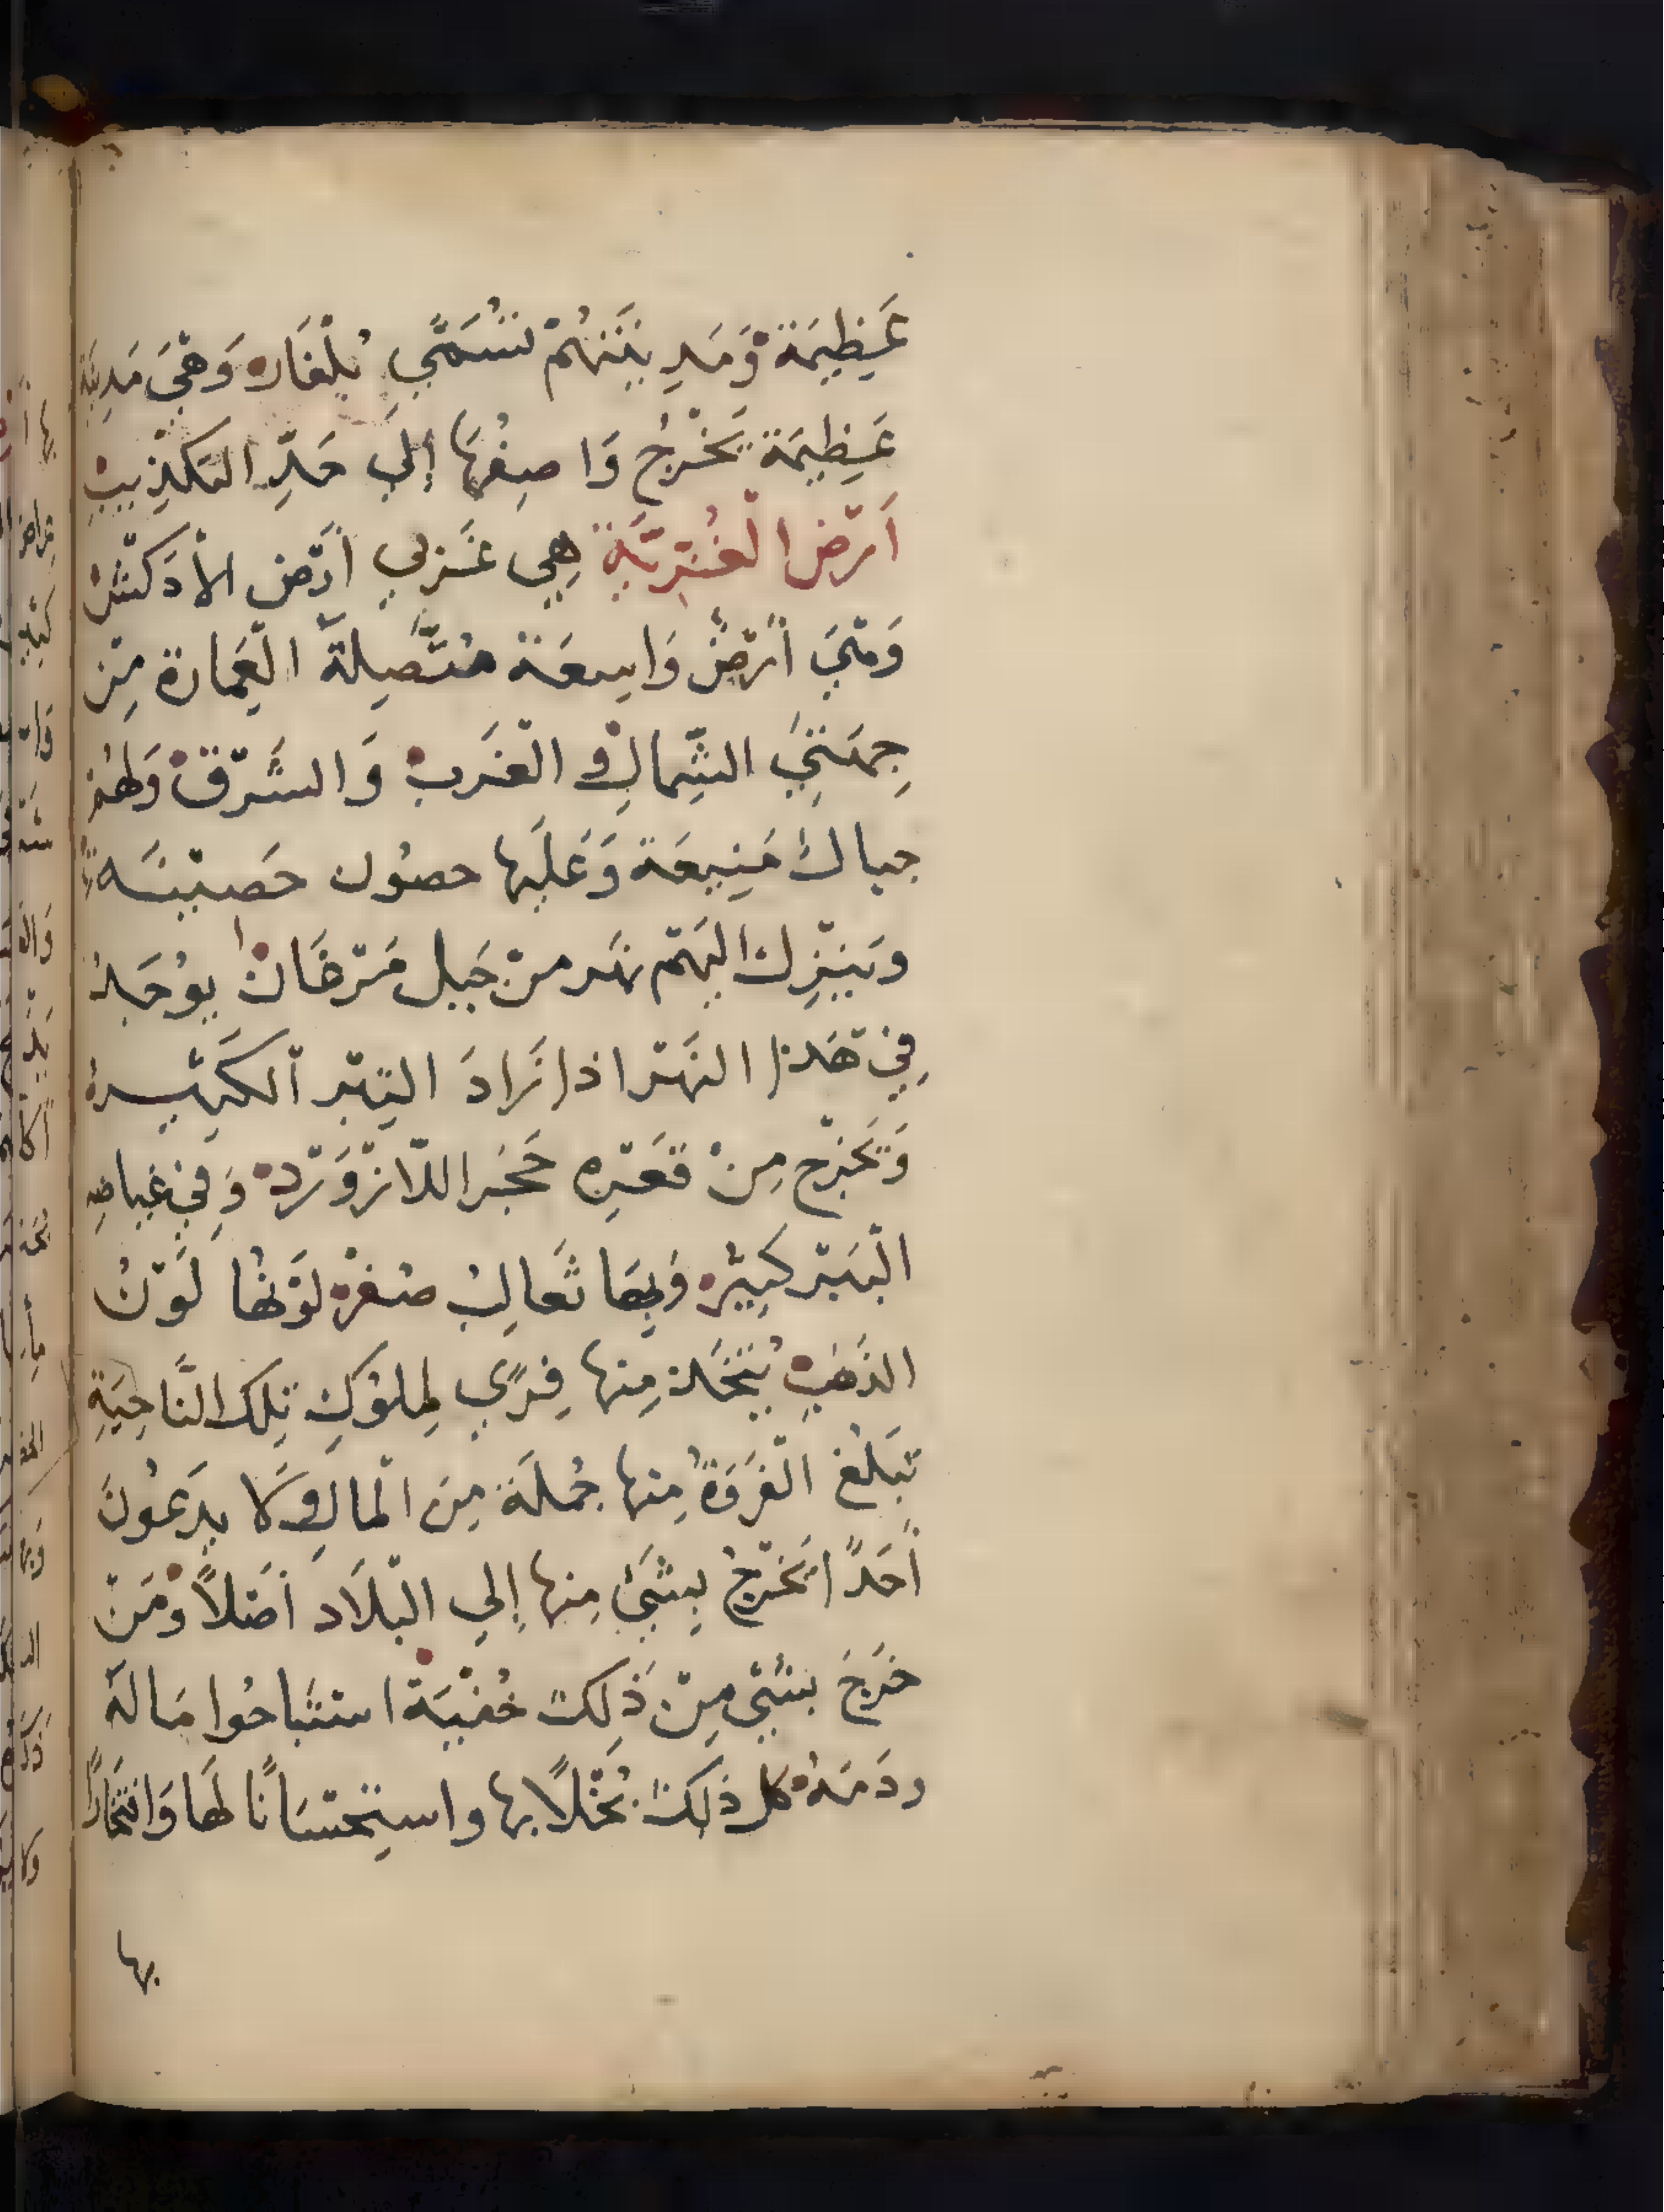 عَظِيمَة وَمَدِينَتَهُمْ تُسَمَّى بُلْغَار وَهِيَ مَدِينَة
عَظِيمَة يَخْرُجُ وَاصِفُهَا إِلَى حَدِّ التَكْذِيبِ
اَرْض الْغُزيَّةِ هِي غَربي أرْض الأدكش
وَهيَ أرْضٌ وَاسِعَة مُتَّصِلَة الْعِمَارة مِن
جِهَتَيْ الشِّمَالِ وَ الْغَرب وَالشَّرْق وَلهُم
جبال مَنِيعَة وَعَلَيها حصُون حَصينَة
وَينْزِل اليَهم نَهر من جَبل مَرْغَان يوُجَد
فِي هَذا النَهْر اذا زَادَ التِبْر الْكَثِير
وَيَخْرج مِنْ قَعْرِه حَجَر اللّازْوَرْد وَفِي غِياضِه
الْبَبْر كَثِيْر وَبِهَا ثَعالِبُ صُفْر لَوْنُهَا لَوْنُ
الذَهَبِ يُتخَذ مِنها فِرًى لِملُوكِ تِلكَ النَّاحِيَةِ
تَبلُغ الْفَرْوَةُ مِنها جُملَة مِنَ الْمالِ وَلا يدَعُونَ
أَحَدًا يَخْرجُ بِشَيْءٍ مِنها إِلي الْبلَاد أَصْلاً وَمَنْ
خَرَجَ بشَيْ مِنْ ذَلِكَ خُفْيَة اسْتَبَاحُوا مَالَهُ
ودَمَهُ كل ذَلِكَ بُخْلًا بها واستِحْسَانًا لَهَا وَافْتِخَارًا
بها